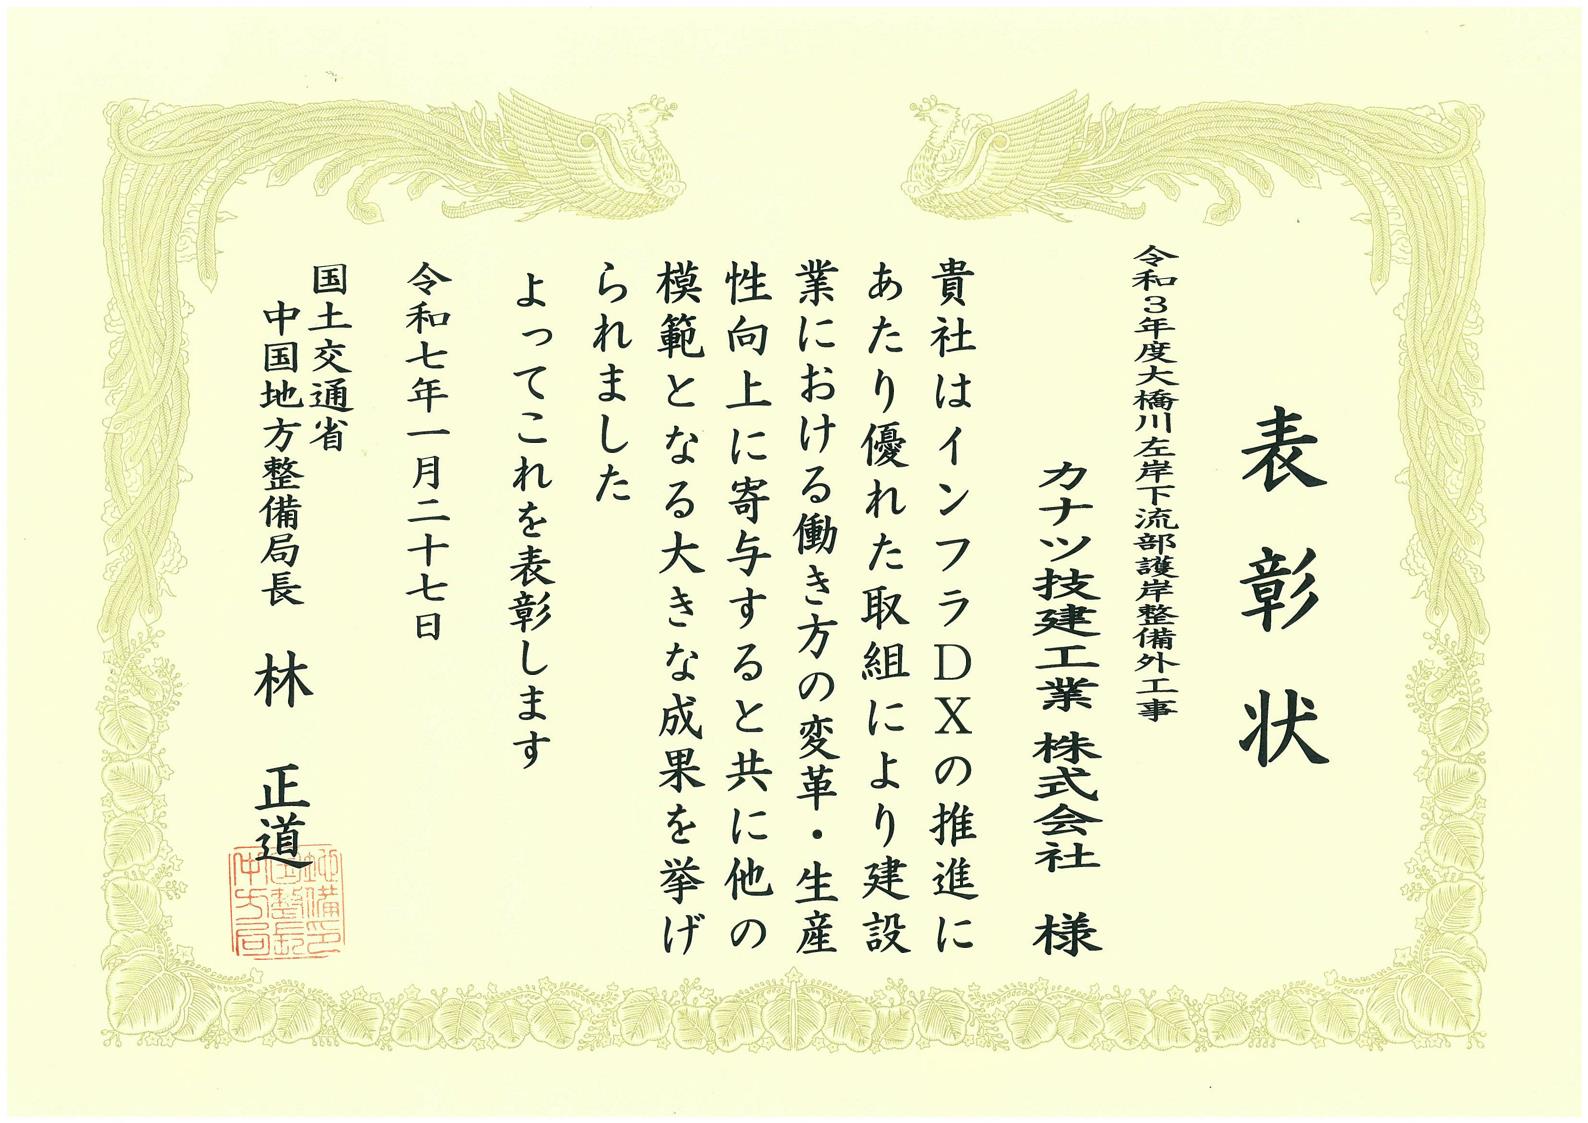 表彰状
令和3年度大橋川左岸下流部護岸整備外工事
カナツ技建工業 株式会社 様
貴社はインフラDXの推進に
あたり優れた取組により建設
業における働き方の変革・生産
性向上に寄与すると共に他の
模範となる大きな成果を挙げ
られました
よってこれを表彰します
令和七年一月二十七日
国土交通省
中国地方整備局長 林 正道